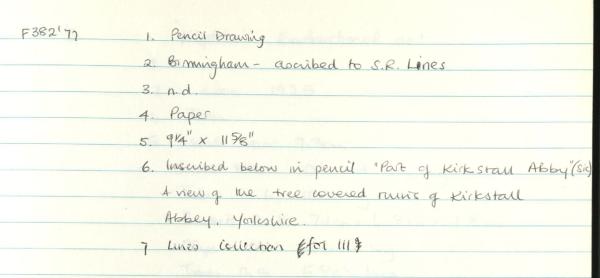 F382'77 1. Pencil Drawing
2. Birmingham - ascribed to S.R. Lines
3. n.d.
4. Paper
5. 9¼" x 11⅝"
6. Inscribed below in pencil "Part of Kirkstall Abby" (sic)
A view of the tree covered ruins of Kirkstall
Abbey. Yorkshire.
7 Lines Collection (for 111)